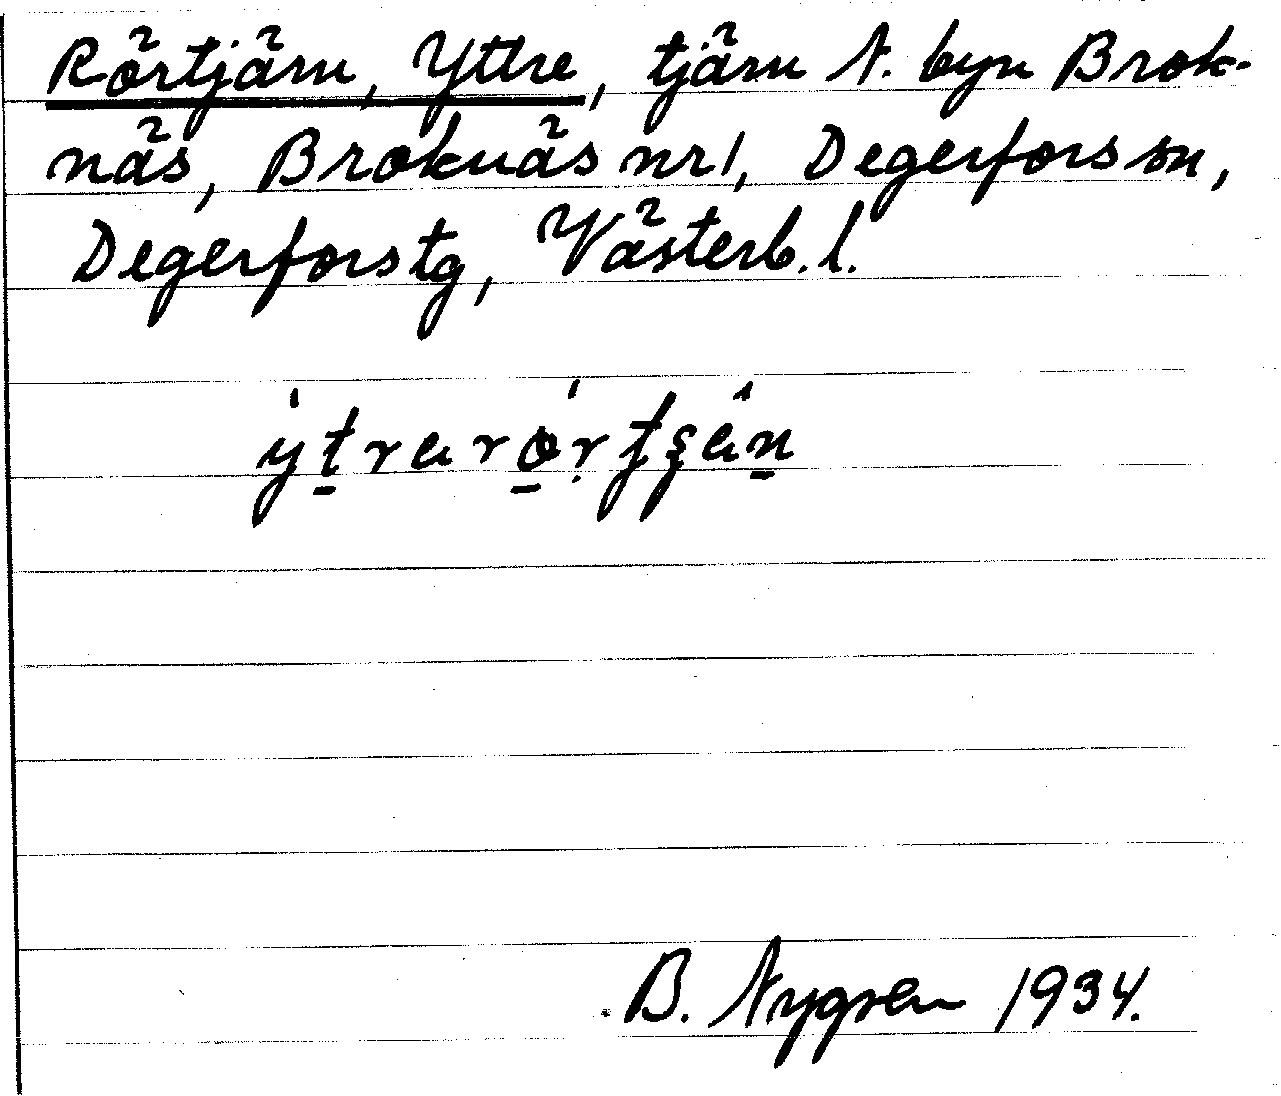 Rörtjärn, Yttre, tjärn N. byn Brok-
näs, Broknäs nr 1, Degerfors sn,
Degerfors tg, Västerb. l.
B. Nygren 1934.